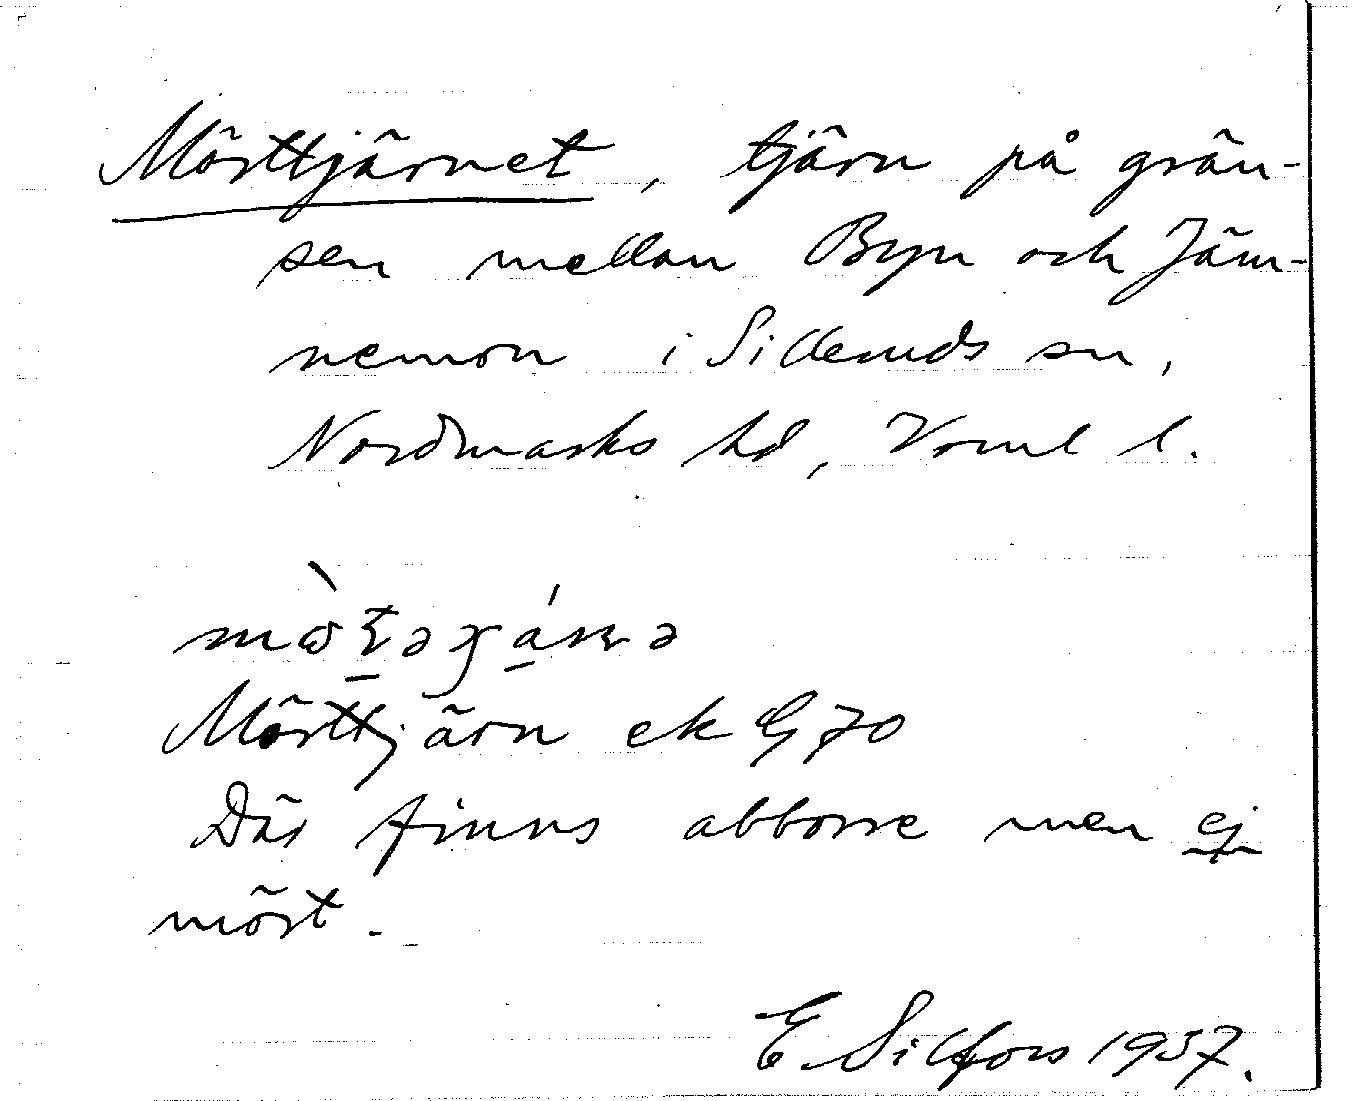 Mörttjärnet, tjärn på grän-
sen mellan Byn och Jäm-
nemon i Silleruds sn,
Nordmarks hd, Vrml l.
Mörttjärn ek G 70
Där finns abborre men ej
mört.
E Silfors 1937.